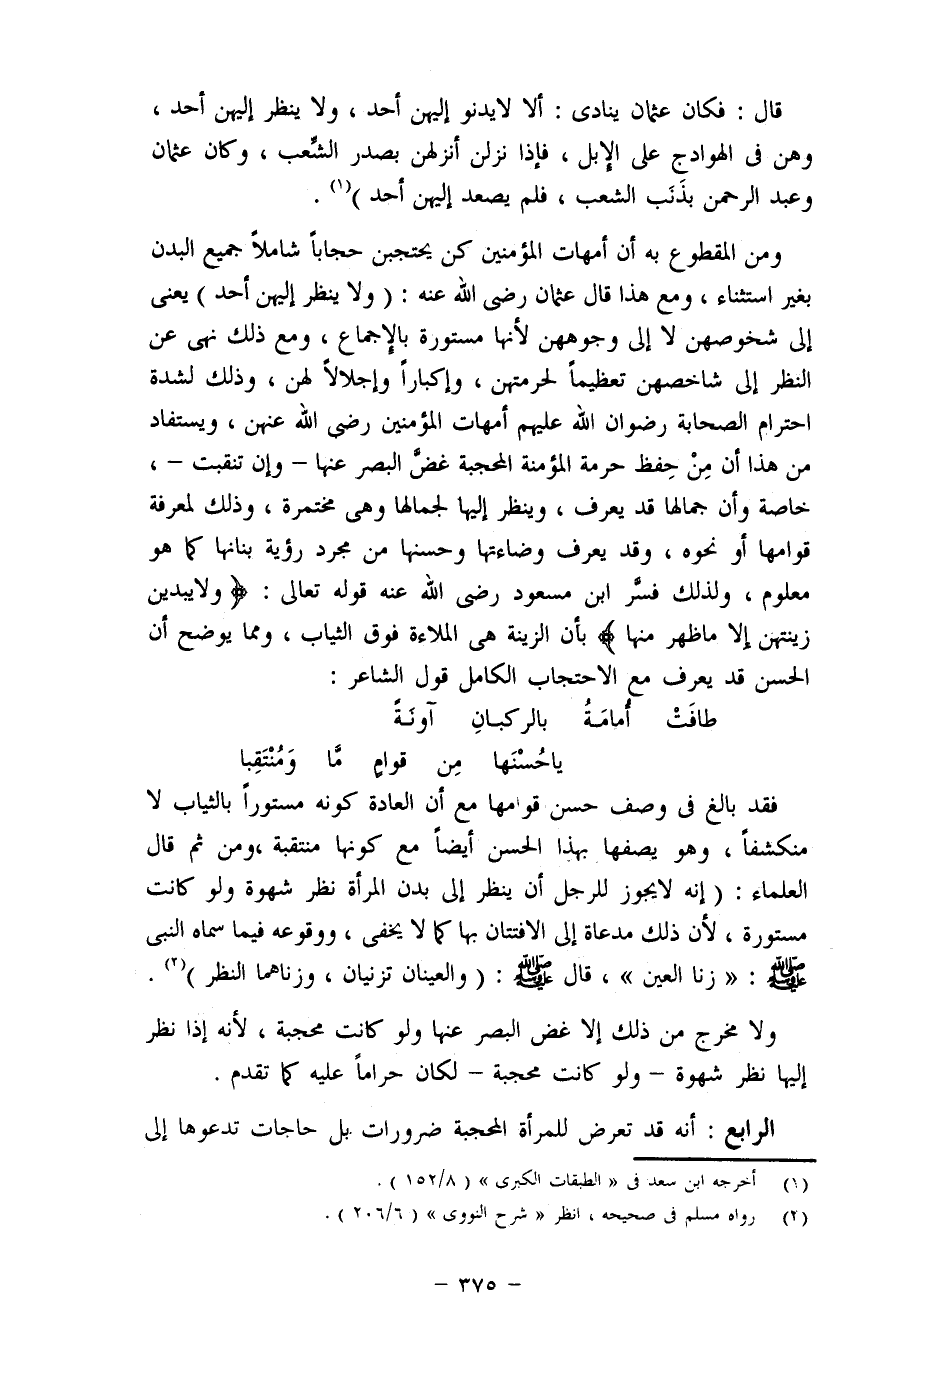 قال : فكان عثمان ينادى : ألا لايدنو إليهن أحد ، ولا ينظر إليهن أحد ،
وهن فى الهوادج على الإبل ، فإذا نزلن أنزلهن بصدر الشِّعب ، وكان عثمان
وعبد الرحمن بذَنَب الشعب ، فلم يصعد إليهن أحد )(١) .
ومن المقطوع به أن أمهات المؤمنين كن يحتجبن حجاباً شاملاً جميع البدن
بغير استثناء ، ومع هذا قال عثمان رضى الله عنه : ( ولا ينظر إليهن أحد ) يعنى
إلى شخوصهن لا إلى وجوههن لأنها مستورة بالإجماع ، ومع ذلك نهى عن
النظر إلى شاخصهن تعظيماً لحرمتهن ، وإكباراً وإجلالاً لهن ، وذلك لشدة
احترام الصحابة رضوان الله عليهم أمهات المؤمنين رضى الله عنهن ، ويستفاد
من هذا أن مِنْ حِفظ حرمة المؤمنة المحجبة غضَّ البصر عنها – وإن تنقبت – ،
خاصة وأن جمالها قد يعرف ، وينظر إليها لجمالها وهى مختمرة ، وذلك لمعرفة
قوامها أو نحوه ، وقد يعرف وضاءتها وحسنها من مجرد رؤية بنانها كما هو
معلوم ، ولذلك فسَّر ابن مسعود رضى الله عنه قوله تعالى : ﴿ ولايبدين
زينتهن إلا ماظهر منها ﴾ بأن الزينة هى الملاءة فوق الثياب ، ومما يوضح أن
الحسن قد يعرف مع الاحتجاب الكامل قول الشاعر :
طافَتْ أُمامَةُ بالركبانِ آونَةً
ياحُسْنَها مِن قوامٍ مَّا وَمُنْتَقِبا
فقد بالغ فى وصف حسن قوامها مع أن العادة كونه مستوراً بالثياب لا
منكشفاً ، وهو يصفها بهذا الحسن أيضاً مع كونها منتقبة ،ومن ثم قال
العلماء : ( إنه لايجوز للرجل أن ينظر إلى بدن المرأة نظر شهوة ولو كانت
مستورة ، لأن ذلك مدعاة إلى الافتتان بها كما لا يخفى ، ووقوعه فيما سماه النبى
ﷺ : « زنا العين » ، قال ﷺ : ( والعينان تزنيان ، وزناهما النظر )(٢) .
ولا مخرج من ذلك إلا غض البصر عنها ولو كانت محجبة ، لأنه إذا نظر
إليها نظر شهوة – ولو كانت محجبة – لكان حراماً عليه كما تقدم .
الرابع : أنه قد تعرض للمرأة المحجبة ضرورات بل حاجات تدعوها إلى
(١) أخرجه ابن سعد فى « الطبقات الكبرى » ( ١٥٢/٨ ) .
(٢) رواه مسلم فى صحيحه ، انظر « شرح النووى » ( ٢٠٦/٦ ) .
– ٣٧٥ –